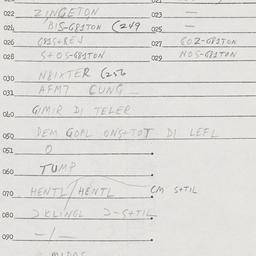 022 ZINGETON 023 —
024 BIS-G81TON (249 025 —
026 G81S+REJ 027 GOZ-G81TON
028 S+OS-G81TON 029 NOS-G81TON
030 N81XTER (256
031 AFM7 CUNG
040 G/MIR DI TELER
050 DEM GOPL ONS+TOT DI LEFL
051 O
060 TUMP
070 HENTL/HENTL CM S+TIL
080 JKLINGL J-S+TIL
090 —/—